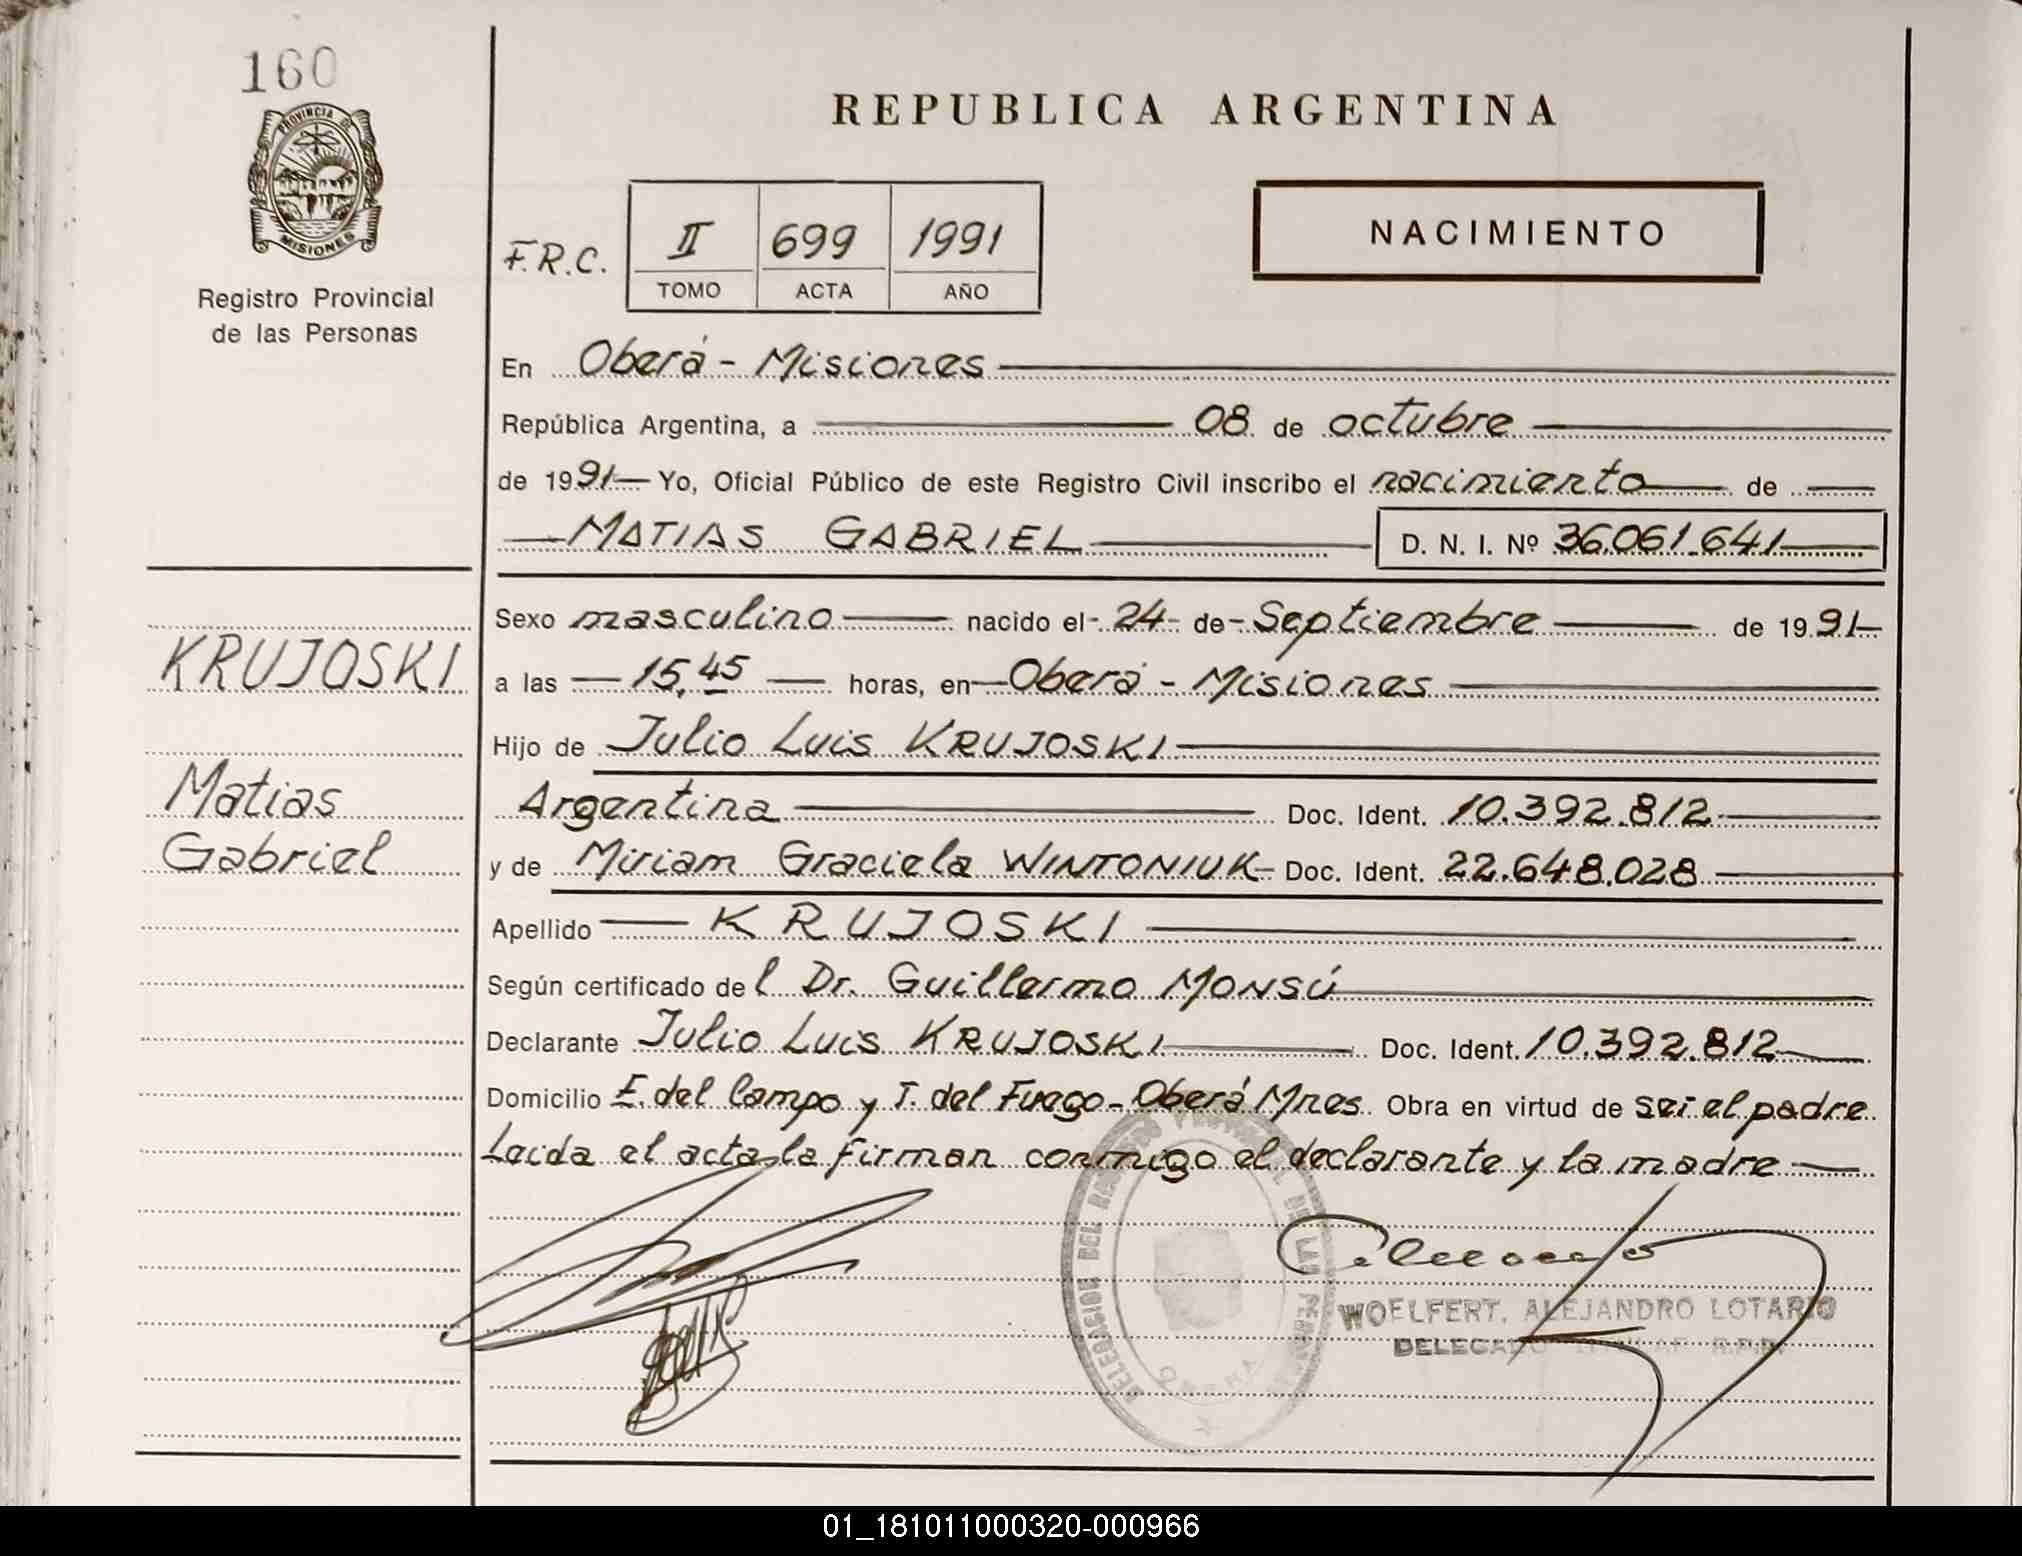 160
PROVINCIA D
MISIONES
Registro Provincial
de las Personas
REPUBLICA ARGENTINA
NACIMIENTO
F.R.C.
II 699 1991
TOMO ACTA AÑO
En Oberá - Misiones
República Argentina, a 08 de octubre
de 1991 Yo, Oficial Público de este Registro Civil inscribo el nacimiento de
MATIAS GABRIEL D. N. I. Nº 36.061.641
KRUJOSKI
Matias
Gabriel
Sexo masculino nacido el 24 de Septiembre de 1991
a las 15,45 horas, en Oberá - Misiones
Hijo de Julio Luis KRUJOSKI
Argentina Doc. Ident. 10.392.812
y de Miriam Graciela WINTONIUK Doc. Ident. 22.648.028
Apellido KRUJOSKI
Según certificado del Dr. Guillermo MONSÚ
Declarante Julio Luis KRUJOSKI Doc. Ident. 10.392.812
Domicilio E. del Campo y T. del Fuego - Oberá Mnes. Obra en virtud de ser el padre
Leida el acta la firman conmigo el declarante y la madre
DELEGACION DEL REGISTRO PROVINCIAL DE LAS PERSONAS
WOELFERT, ALEJANDRO LOTARIO
DELEGADO R.P.P.
01_181011000320-000966